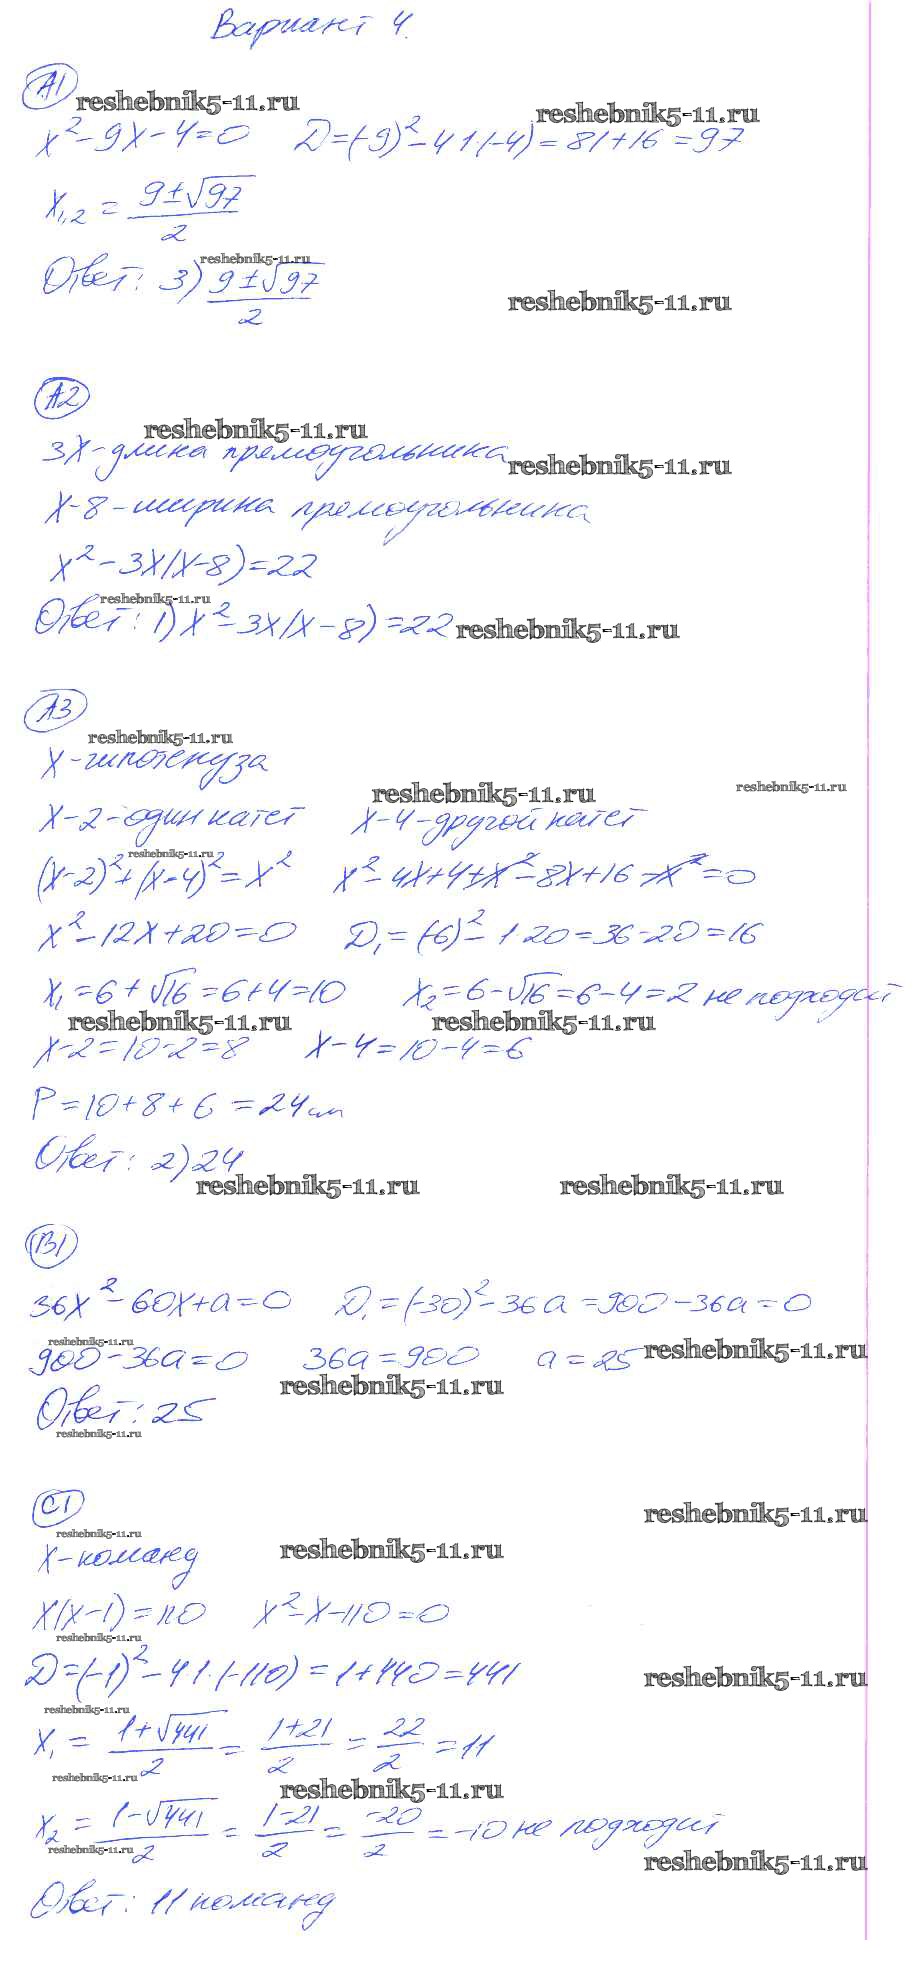 Вариант 4.
А1
reshebnik5-11.ru
reshebnik5-11.ru
x²-9x-4=0   D=(-9)²-4·1·(-4)=81+16=97
x₁,₂ = (9±√97)/2
reshebnik5-11.ru
Ответ: 3) (9±√97)/2
reshebnik5-11.ru
А2
reshebnik5-11.ru
3x-длина прямоугольника
reshebnik5-11.ru
x-8-ширина прямоугольника
x²-3x(x-8)=22
reshebnik5-11.ru
Ответ: 1) x²-3x(x-8)=22
reshebnik5-11.ru
А3
reshebnik5-11.ru
x-гипотенуза
reshebnik5-11.ru
reshebnik5-11.ru
x-2-один катет   x-4-другой катет
reshebnik5-11.ru
(x-2)²+(x-4)²=x²   x²-4x+4+x²-8x+16-x²=0
x²-12x+20=0   D₁=(-6)²-1·20=36-20=16
x₁=6+√16=6+4=10   x₂=6-√16=6-4=2 не подходит
reshebnik5-11.ru
reshebnik5-11.ru
x-2=10-2=8   x-4=10-4=6
P=10+8+6=24см
Ответ: 2) 24
reshebnik5-11.ru
reshebnik5-11.ru
В1
36x²-60x+a=0   D₁=(-30)²-36a=900-36a=0
reshebnik5-11.ru
900-36a=0   36a=900   a=25
reshebnik5-11.ru
reshebnik5-11.ru
Ответ: 25
reshebnik5-11.ru
С1
reshebnik5-11.ru
reshebnik5-11.ru
x-команд
reshebnik5-11.ru
x(x-1)=110   x²-x-110=0
reshebnik5-11.ru
D=(-1)²-4·1·(-110)=1+440=441
reshebnik5-11.ru
reshebnik5-11.ru
x₁ = (1+√441)/2 = (1+21)/2 = 22/2 = 11
reshebnik5-11.ru
reshebnik5-11.ru
x₂ = (1-√441)/2 = (1-21)/2 = -20/2 = -10 не подходит
reshebnik5-11.ru
reshebnik5-11.ru
Ответ: 11 команд